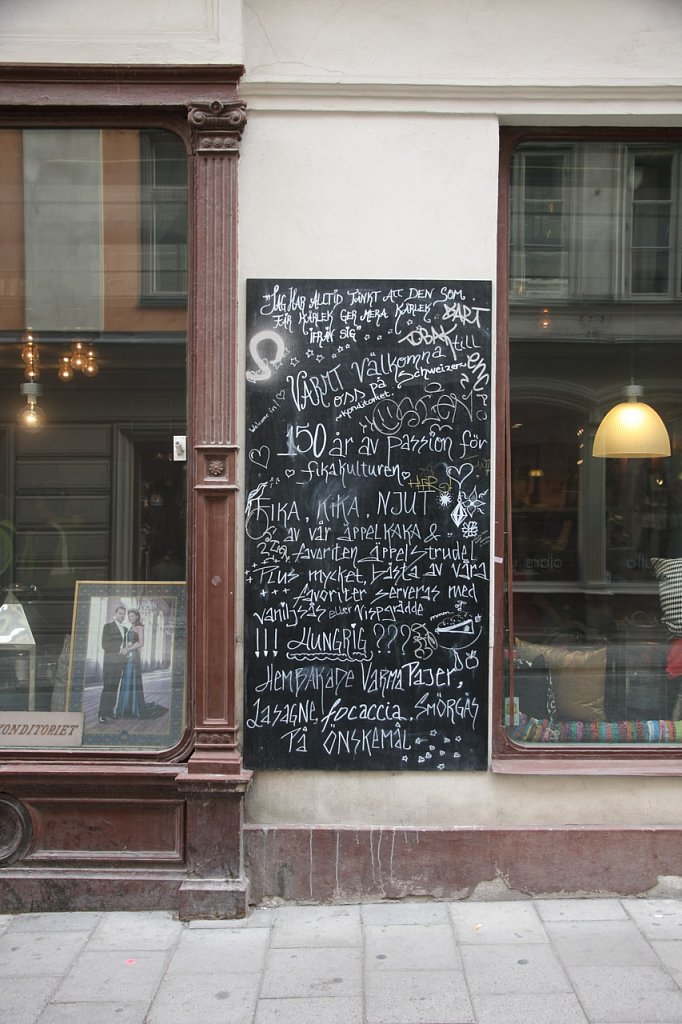 "JAG HAR ALLTID TÄNKT ATT DEN SOM
FÅR KÄRLEK GER MERA KÄRLEK
IFRÅN SIG"
VARMT Välkomna till
oss på Schweizer
konditoriet.
Welcome in!
150 år av passion för
fikakulturen
FIKA, KIKA, NJUT
av vår äppelkaka &
favoriten äppelstrudel
Plus mycket, bästa av våra
favoriter serveras med
vaniljsås eller vispgrädde
!!! HUNGRIG ???
HEMBAKADE VARMA PAJER,
LASAGNE, focaccia, SMÖRGÅS
PÅ ÖNSKEMÅL
KONDITORIET